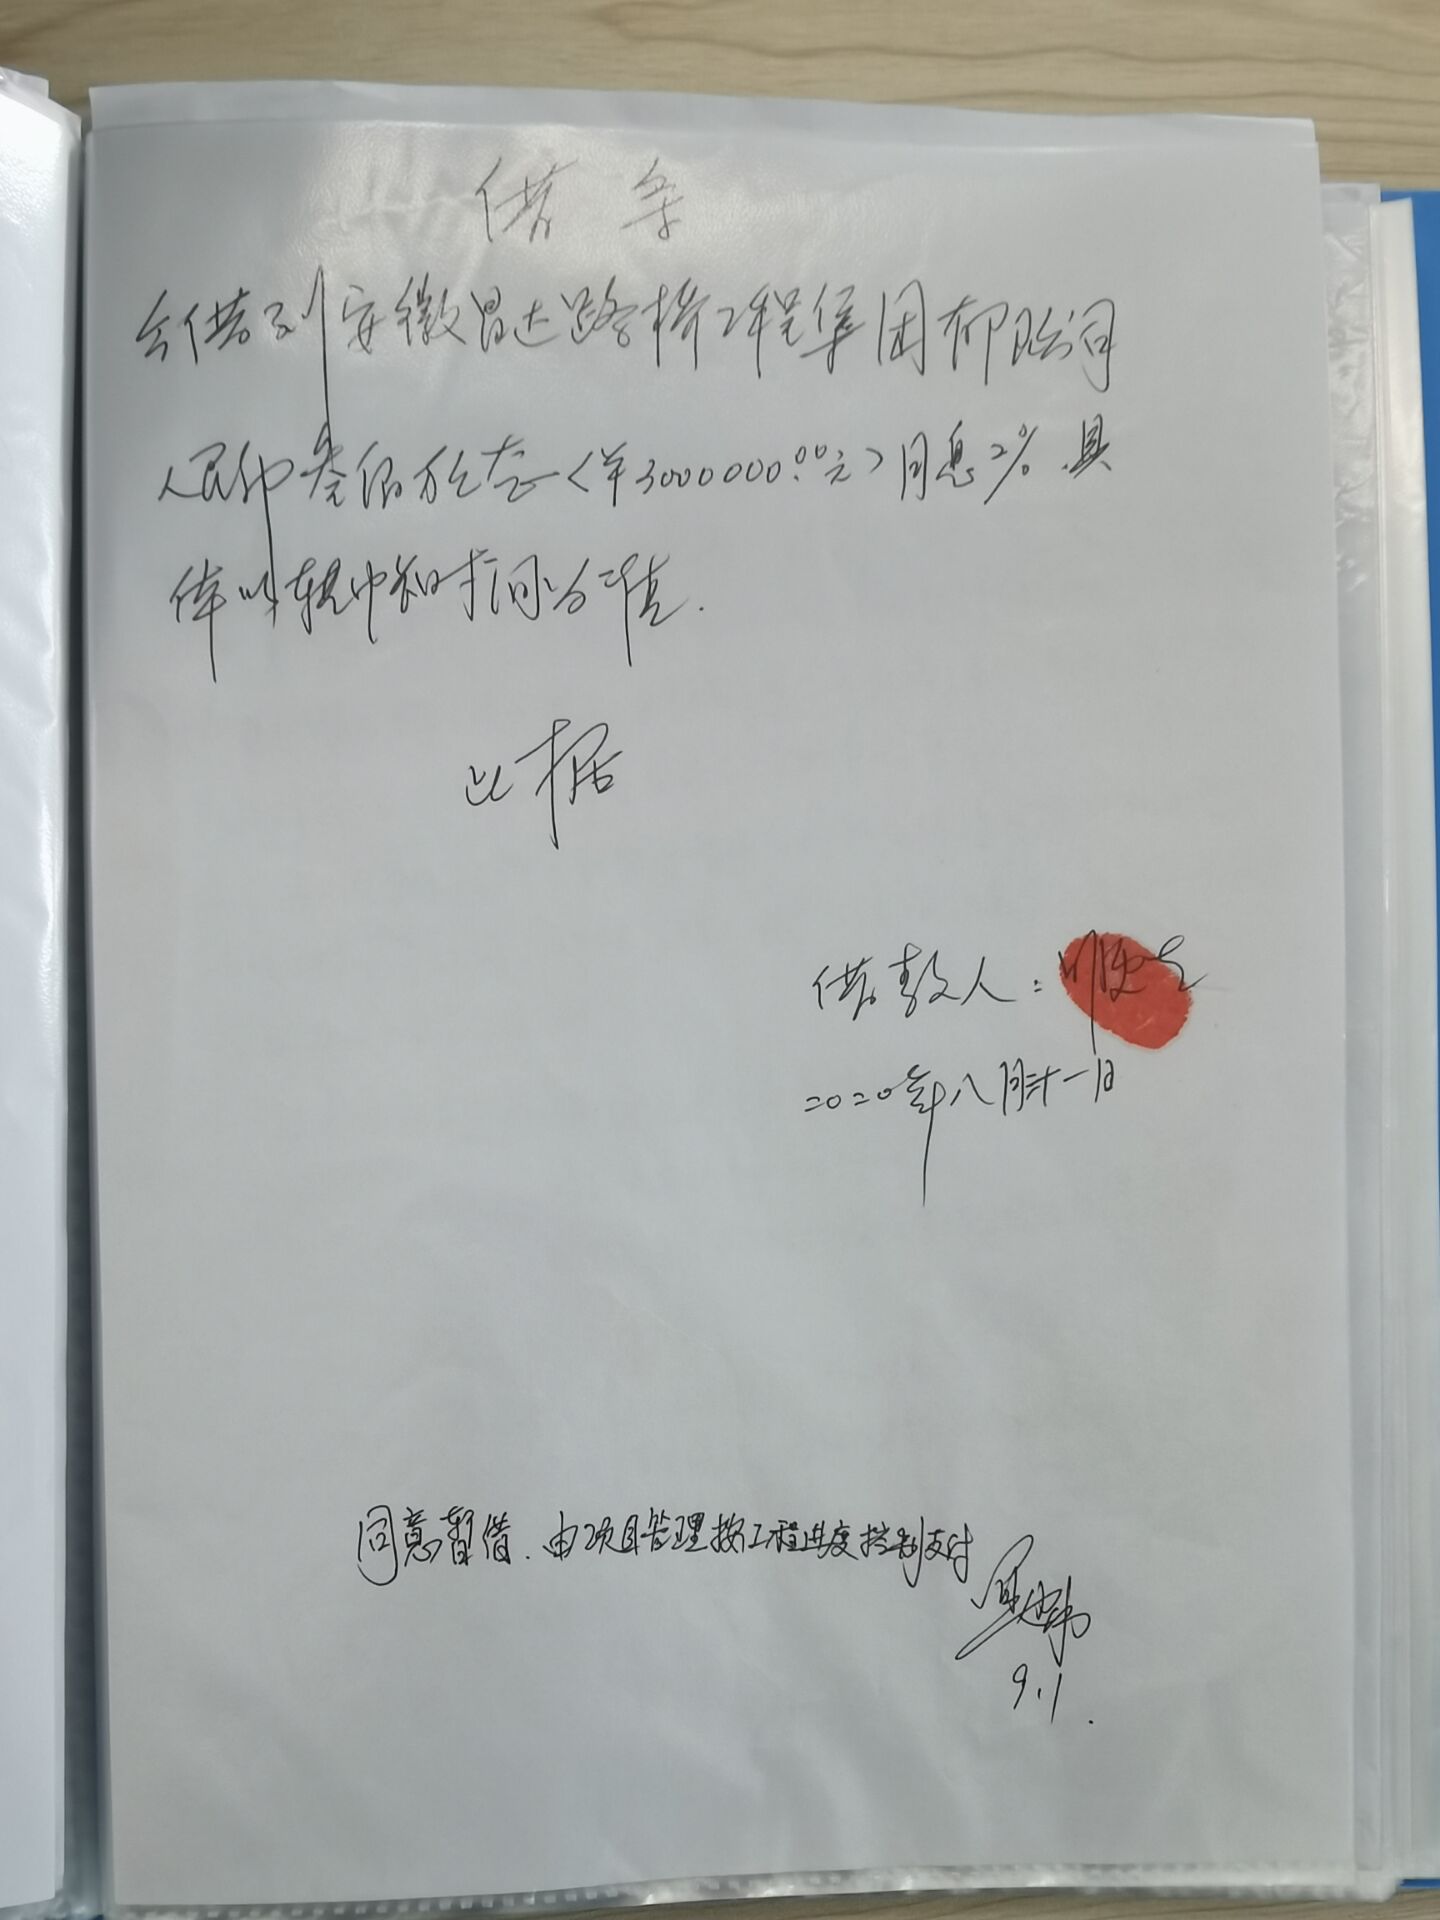 借条
今借到安徽昌达路桥工程集团有限公司
人民币叁佰万元整（¥3000000.00元）月息2%.具
体以转帐时间为准.
此据
借款人：
二〇二〇年八月三十一日
同意暂借.由项目管理按工程进度控制支付
9.1.